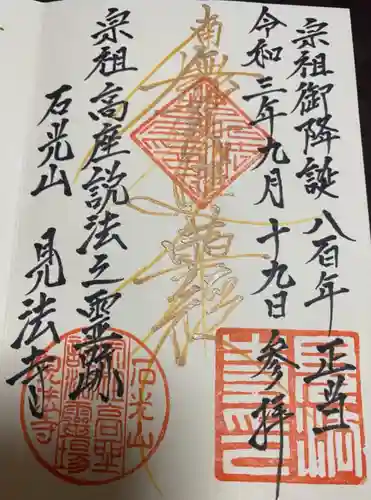 宗祖御降誕八百年正当
令和三年九月十九日 参拝
南無妙法蓮華経
宗祖高座説法之霊跡
石光山 見法寺
石光山
宗祖高座
説法霊場
見法寺